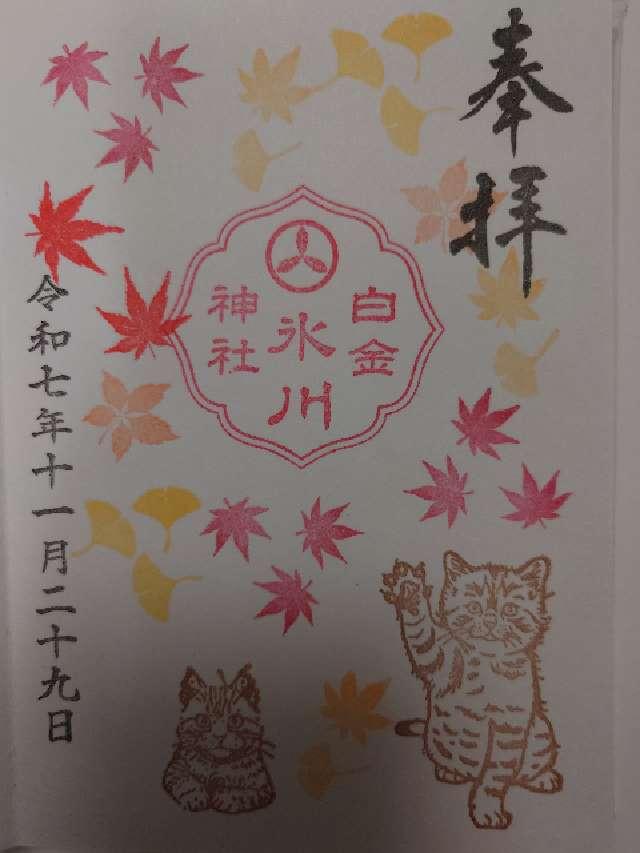 奉拝
白金
氷川
神社
令和七年十一月二十九日